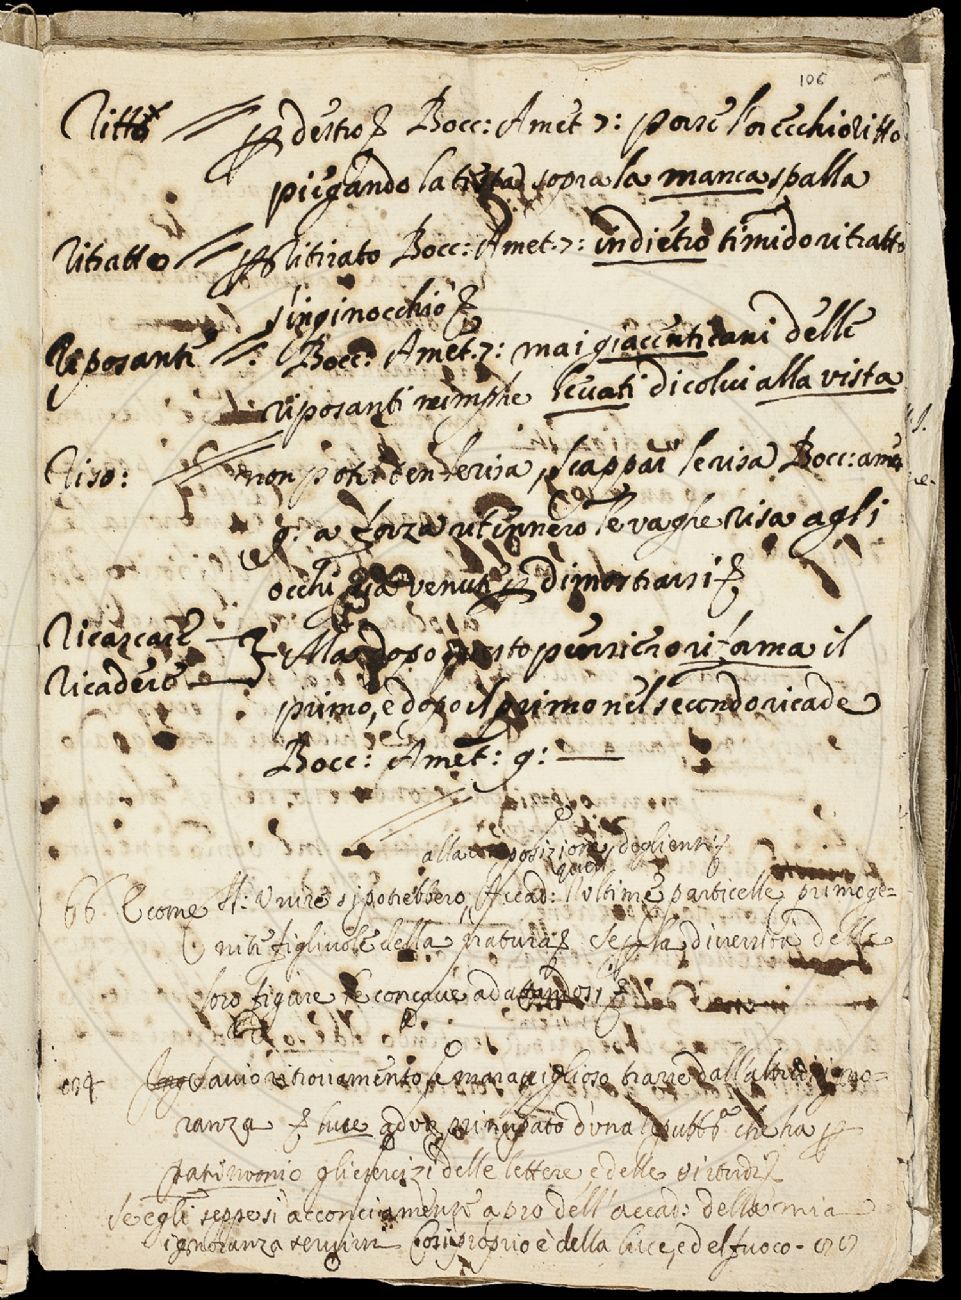 106
Ritto p destro Bocc: Amet 7: porse l'orecchio ritto
piegando la testa sopra la manca spalla
Ritratto p ritirato Bocc: Amet. 7: indietro timido ritratto
s'inginocchiò
Riposanti Bocc: Amet. 7: mai giacenti cani delle
riposanti nimphe levati di colui alla vista
Riso: non poter tener le risa, scappar le risa Bocc: amet
9: a forza ritinnero le vaghe risa agli
occhi già venute p dimostrarsi
Ricascare
Ricadere Ma dopo questo pensiero riforma il
primo, e dopo il primo nel secondo ricade
Bocc: Amet: 9:
alla posizione degli enti
66 E come Unire si potrebbero, Accad: l'ultime particelle primoge=
nite figliuole della natura se la diversità delle
loro figure le concave
savio ritrovamento, e maraviglioso trarre dall'altrui igno=
ranza luce ad un principato d'una che ha p
patrimonio gli esercizi delle lettere e delle virtudi
Se egli seppe sì acconciamente a pro dell'accad: della mia
ignoranza servirsi Così proprio è della luce, e del fuoco